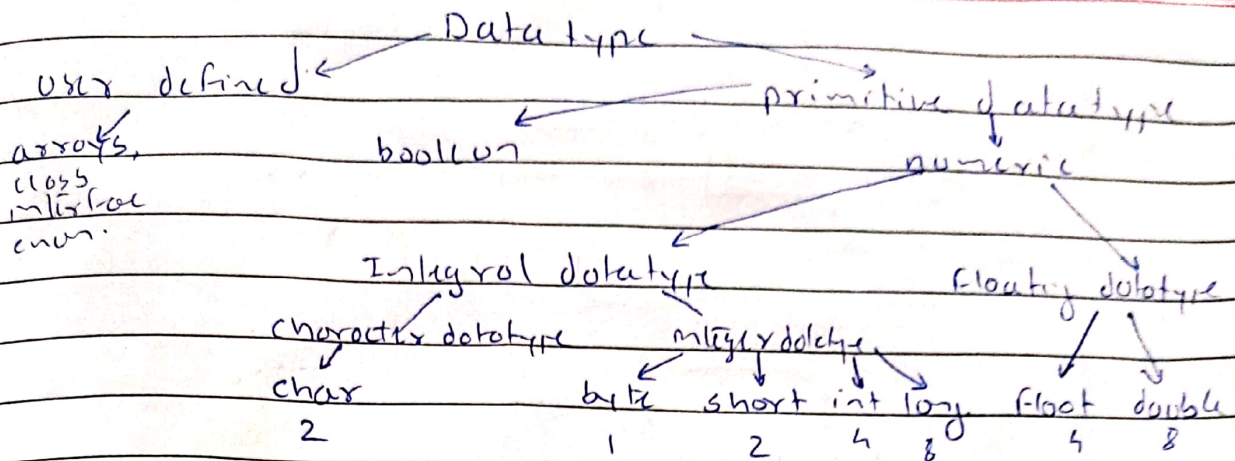 Data type
user defined
primitive datatype
arrays,
class
interface
enum.
boolean
numeric
Integral datatype
Floating datatype
character datatype
integer datatype
char
byte
short
int
long
float
double
2
1
2
4
8
4
8